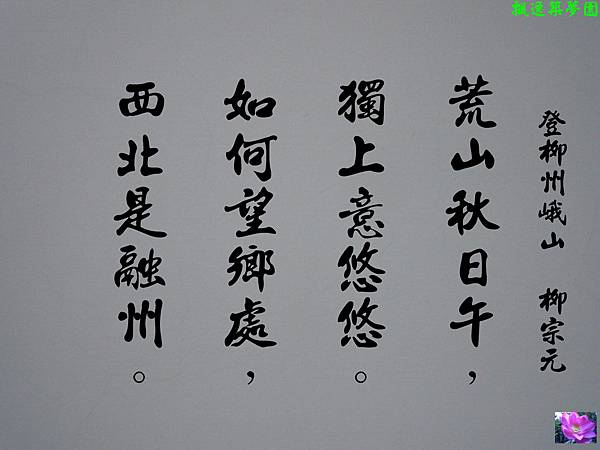 飄逸築夢園
登柳州峨山　柳宗元
荒山秋日午，
獨上意悠悠。
如何望鄉處，
西北是融州。